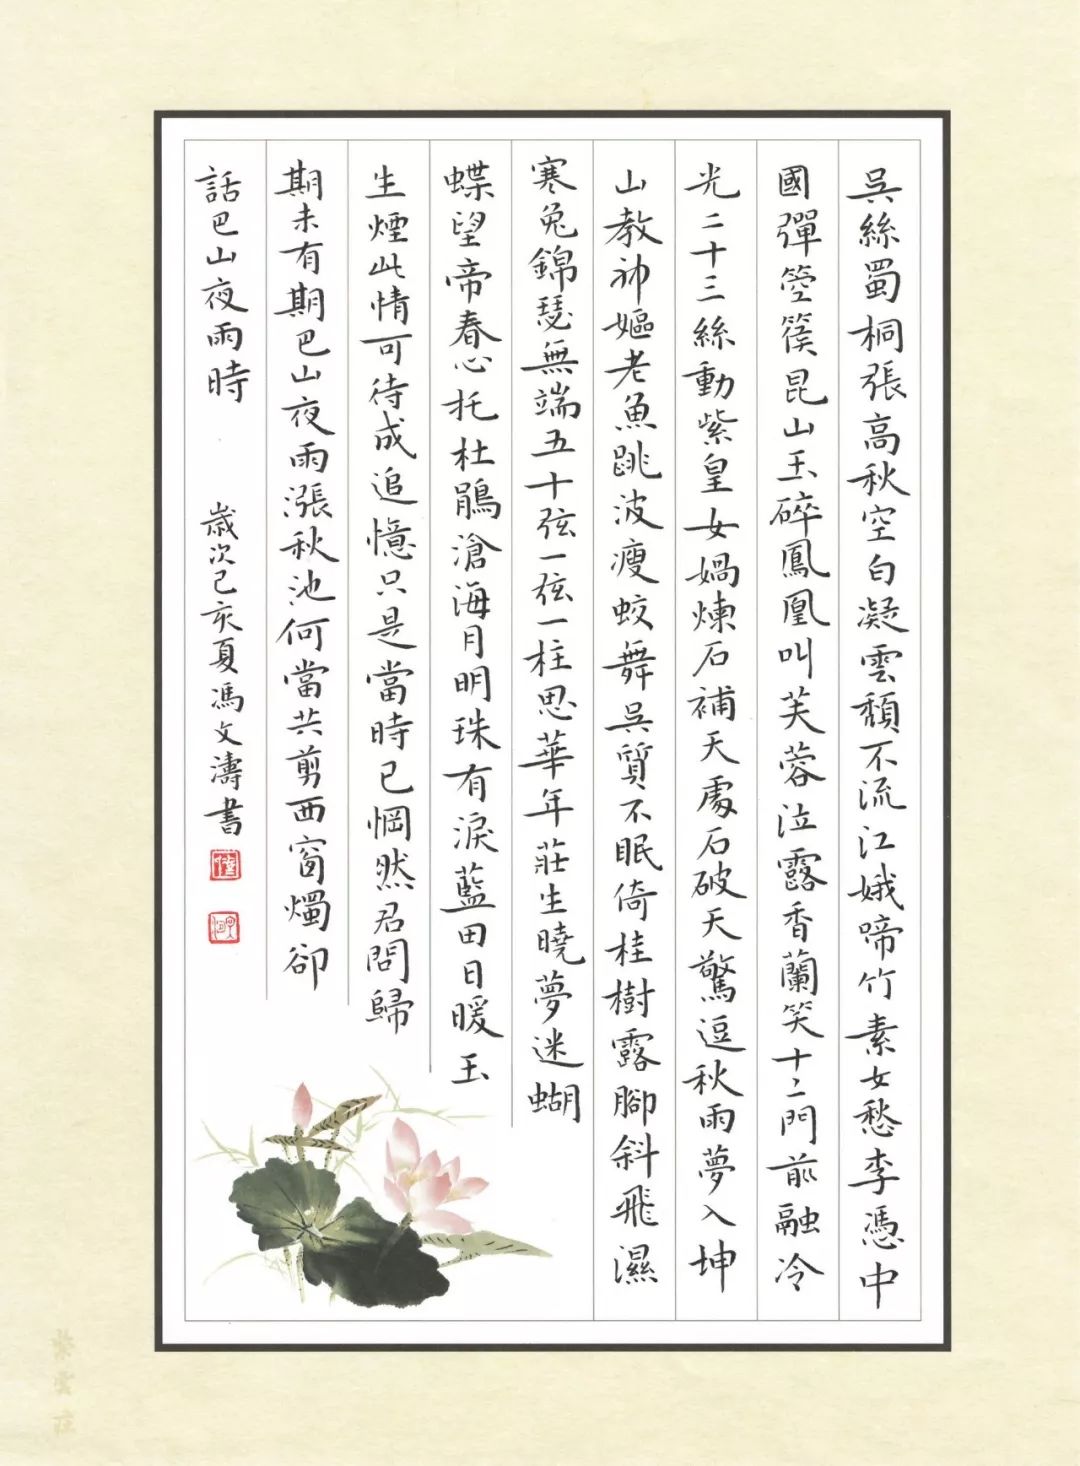 吳絲蜀桐張高秋空白凝雲頹不流江娥啼竹素女愁李憑中
國彈箜篌昆山玉碎鳳凰叫芙蓉泣露香蘭笑十二門前融冷
光二十三絲動紫皇女媧煉石補天處石破天驚逗秋雨夢入坤
山教神嫗老魚跳波瘦蛟舞吳質不眠倚桂樹露腳斜飛濕
寒兔錦瑟無端五十弦一弦一柱思華年莊生曉夢迷蝴
蝶望帝春心托杜鵑滄海月明珠有淚藍田日暖玉
生煙此情可待成追憶只是當時已惘然君問歸
期未有期巴山夜雨漲秋池何當共剪西窗燭卻
話巴山夜雨時 歲次己亥夏馮文濤書